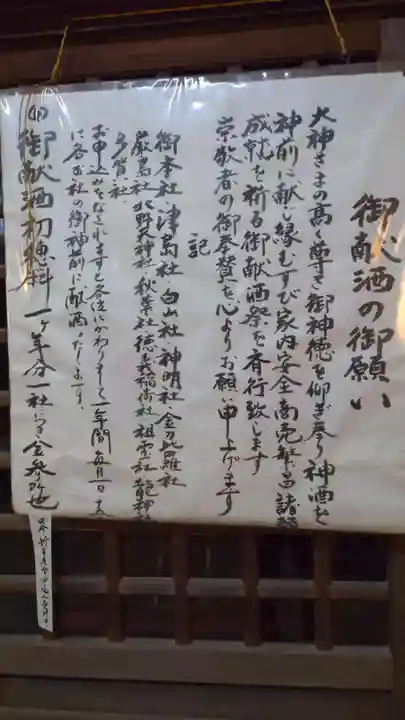 御献酒の御願い
大神さまの高い尊き御神徳を仰ぎ奉り神酒を
神前に献じ縁むすび家内安全商売繁昌諸願
成就を祈る御献酒祭を斎行致します
崇敬者の御奉賛を心よりお願い申上げます
記
御本社・津島社・白山社・神明社・金刀比羅社
厳島社・北野天神社・秋葉社・徳義稲荷社・祖霊社・龍神社
多賀社
お申込みをなされますと各位にかわりまして一年間毎月一日十五
に各お社の御神前に献酒いたします
御献酒初穂料 一ヶ年分一社につき金参阡也